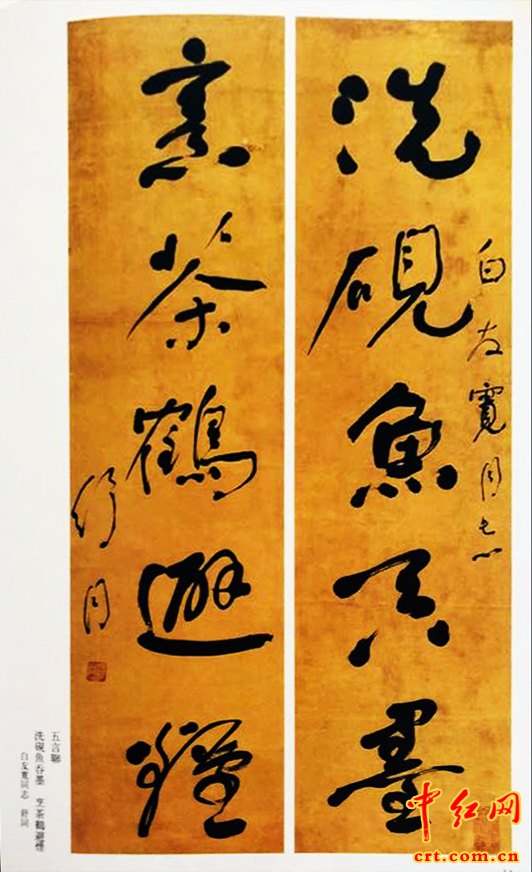 白友寬同志
洗硯魚吞墨
烹茶鶴避煙
舒同
五言聯
洗硯魚吞墨 烹茶鶴避煙
白友寬同志 舒同
中红网
crt.com.cn